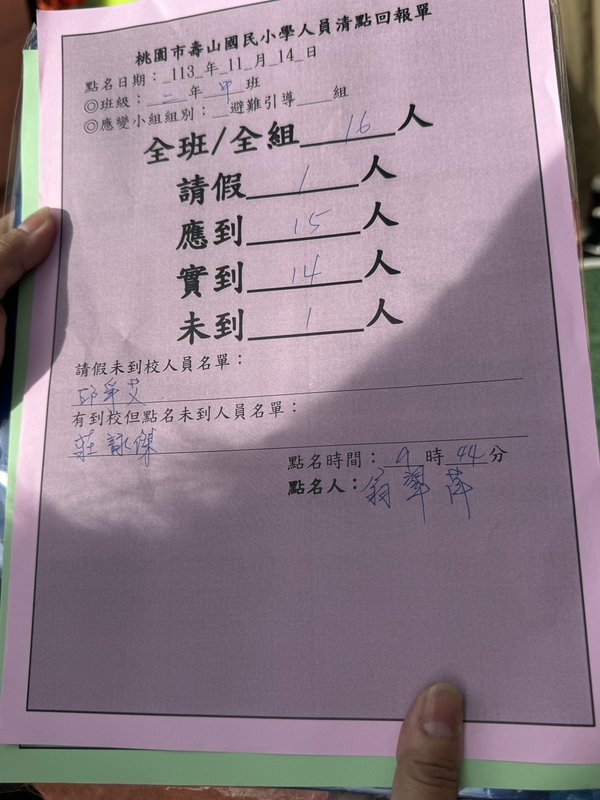 桃園市壽山國民小學人員清點回報單
點名日期：_113_年_11_月_14_日
◎班級：__二_年_甲_班
◎應變小組組別：__避難引導____組
全班/全組 16 人
請假 1 人
應到 15 人
實到 14 人
未到 1 人
請假未到校人員名單：
邱
有到校但點名未到人員名單：
莊詠傑
點名時間：9 時 44 分
點名人：翁翠萍